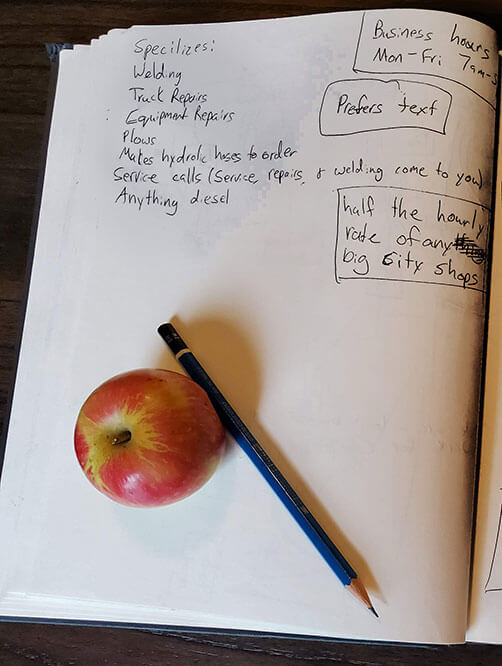 Specilizes:
Welding
Truck Repairs
Equipment Repairs
Plows
Makes hydrolic hoses to order
Service calls (Service, repairs, & welding come to you)
Anything diesel
Business hours
Mon-Fri 7am-
Prefers text
half the hourly
rate of any
big city shops